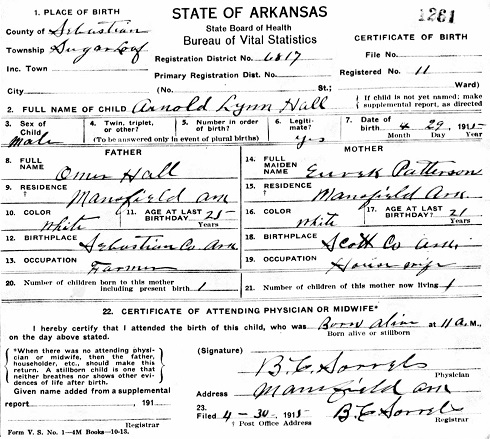 1. PLACE OF BIRTH
STATE OF ARKANSAS
1261
County of Sebastian
State Board of Health
Bureau of Vital Statistics
CERTIFICATE OF BIRTH
Township Sugar Loaf
Registration District No. 6817
File No.
Inc. Town
Primary Registration Dist. No.
Registered No. 11
City (No. St.; Ward)
2. FULL NAME OF CHILD Arnold Lynn Hall
{ If child is not yet named; make supplemental report, as directed
3. Sex of Child Male
4. Twin, triplet, or other?
5. Number in order of birth?
(To be answered only in event of plural births)
6. Legitimate? Yes
7. Date of birth 4 29, 1915
Month Day
FATHER
MOTHER
8. FULL NAME Omer Hall
14. FULL MAIDEN NAME Patterson
9. RESIDENCE † Mansfield Ark
15. RESIDENCE † Mansfield Ark.
10. COLOR White
11. AGE AT LAST BIRTHDAY? 25 Years
16. COLOR White
17. AGE AT LAST BIRTHDAY? 21 Years
12. BIRTHPLACE Sebastian Co. Ark
18. BIRTHPLACE Scott Co
13. OCCUPATION Farmer
19. OCCUPATION House wife
20. Number of children born to this mother including present birth 1
21. Number of children of this mother now living 1
22. CERTIFICATE OF ATTENDING PHYSICIAN OR MIDWIFE*
I hereby certify that I attended the birth of this child, who was Born Alive at 11 a M.,
Born alive or stillborn
on the day above stated.
{ *When there was no attending physician or midwife, then the father, householder, etc., should make this return. A stillborn child is one that neither breathes nor shows other evidences of life after birth. }
(Signature) B.C. Sorrels
Physician
Address Mansfield Ark
Given name added from a supplemental
report , 191
Registrar
23.
Filed 4-30-1915 B.C. Sorrels
† Post Office Address
Registrar
Form V. S. No. 1—4M Books—10-13.